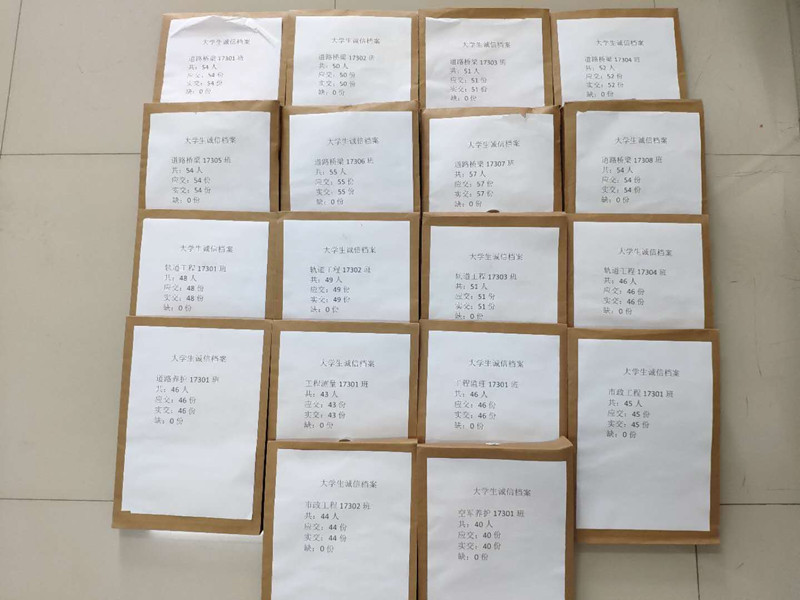 大学生诚信档案
道路桥梁 17301 班
共：54 人
应交：54 份
实交：54 份
缺：0 份
大学生诚信档案
道路桥梁 17302 班
共：50 人
应交：50 份
实交：50 份
缺：0 份
大学生诚信档案
道路桥梁 17303 班
共：51 人
应交：51 份
实交：51 份
缺：0 份
大学生诚信档案
道路桥梁 17304 班
共：52 人
应交：52 份
实交：52 份
缺：0 份
大学生诚信档案
道路桥梁 17305 班
共：54 人
应交：54 份
实交：54 份
缺：0 份
大学生诚信档案
道路桥梁 17306 班
共：55 人
应交：55 份
实交：55 份
缺：0 份
大学生诚信档案
道路桥梁 17307 班
共：57 人
应交：57 份
实交：57 份
缺：0 份
大学生诚信档案
道路桥梁 17308 班
共：54 人
应交：54 份
实交：54 份
缺：0 份
大学生诚信档案
轨道工程 17301 班
共：48 人
应交：48 份
实交：48 份
缺：0 份
大学生诚信档案
轨道工程 17302 班
共：49 人
应交：49 份
实交：49 份
缺：0 份
大学生诚信档案
轨道工程 17303 班
共：51 人
应交：51 份
实交：51 份
缺：0 份
大学生诚信档案
轨道工程 17304 班
共：46 人
应交：46 份
实交：46 份
缺：0 份
大学生诚信档案
道路养护 17301 班
共：46 人
应交：46 份
实交：46 份
缺：0 份
大学生诚信档案
工程测量 17301 班
共：43 人
应交：43 份
实交：43 份
缺：0 份
大学生诚信档案
工程监理 17301 班
共：46 人
应交：46 份
实交：46 份
缺：0 份
大学生诚信档案
市政工程 17301 班
共：45 人
应交：45 份
实交：45 份
缺：0 份
大学生诚信档案
市政工程 17302 班
共：44 人
应交：44 份
实交：44 份
缺：0 份
大学生诚信档案
空军养护 17301 班
共：40 人
应交：40 份
实交：40 份
缺：0 份